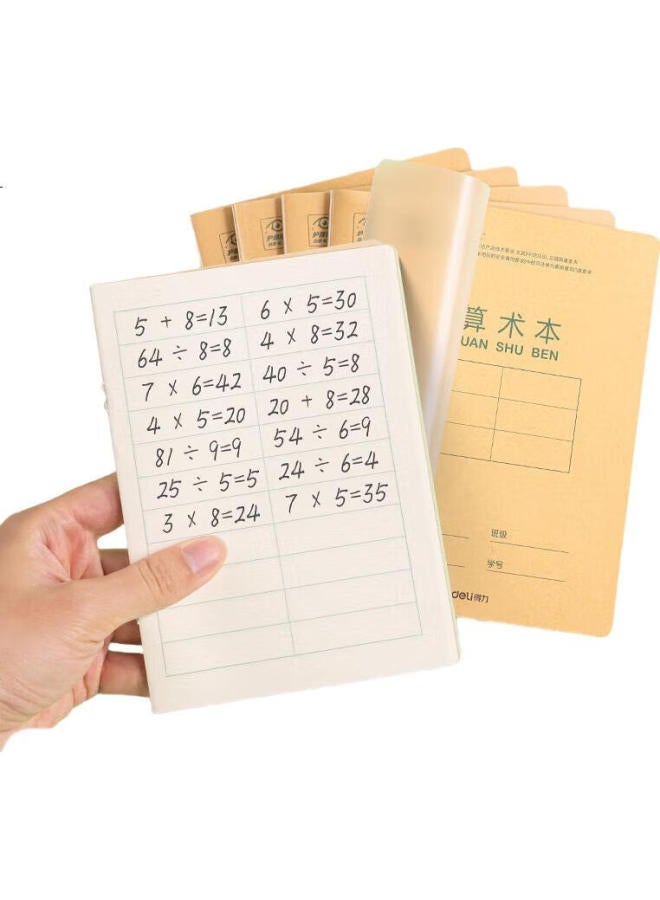 5 + 8=13 6 × 5=30
64 ÷ 8=8 4 × 8=32
7 × 6=42 40 ÷ 5=8
4 × 5=20 20 + 8=28
81 ÷ 9=9 54 ÷ 6=9
25 ÷ 5=5 24 ÷ 6=4
3 × 8=24 7 × 5=35
算术本
UAN SHU BEN
班级
学号
deli得力